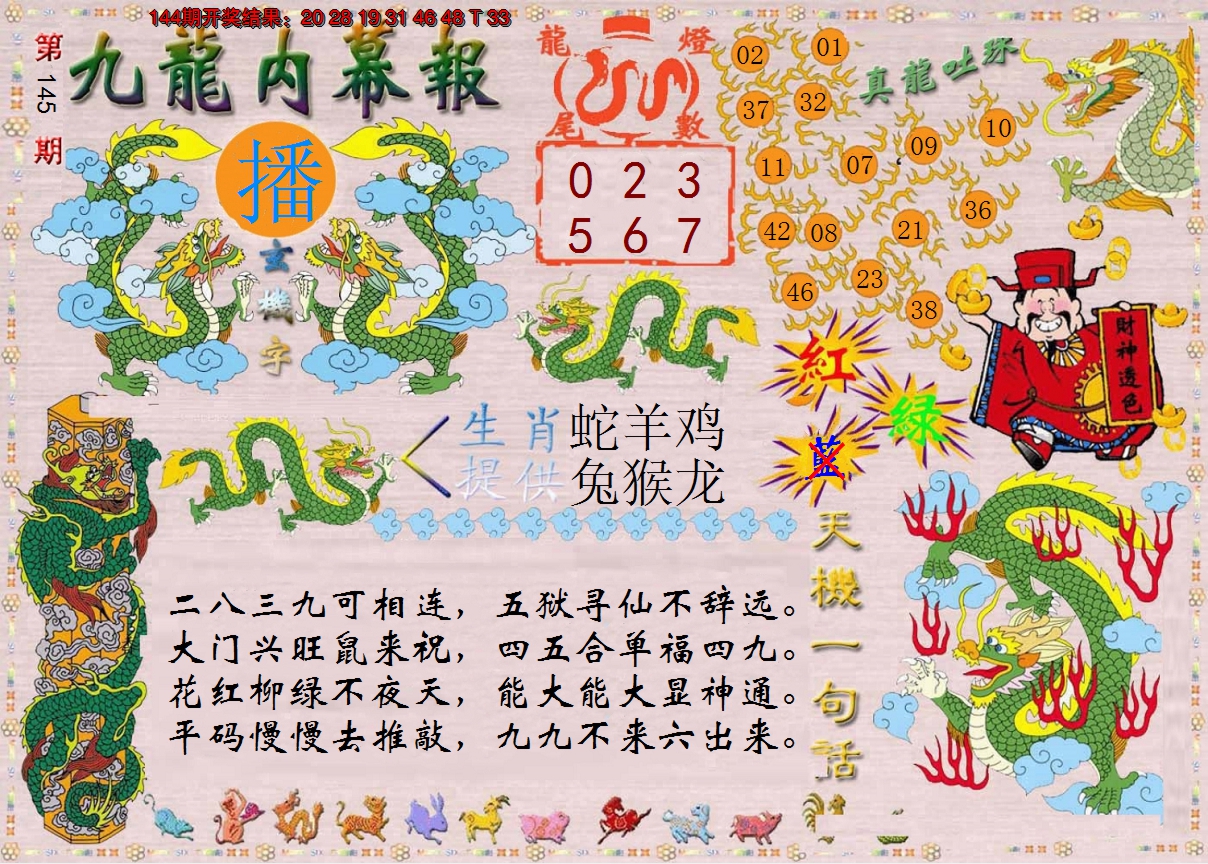 144期开奖结果：20 28 19 31 46 48 T 33
第145期
九龍内幕報
播
玄機字
龍燈尾數
0 2 3
5 6 7
真龍吐珠
02 01
37 32
11 07 09 10
42 08 21 36
46 23 38
財神透色
紅
绿
藍
生肖提供
蛇羊鸡
兔猴龙
天機一句话
二八三九可相连，五狱寻仙不辞远。
大门兴旺鼠来祝，四五合单福四九。
花红柳绿不夜天，能大能大显神通。
平码慢慢去推敲，九九不来六出来。